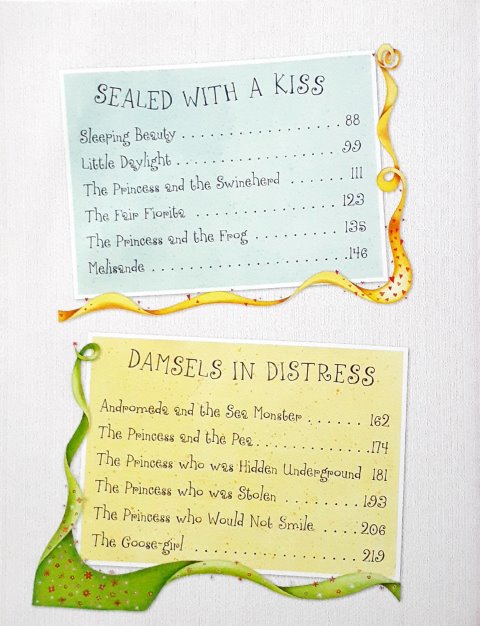 SEALED WITH A KISS
Sleeping Beauty . . . . . . . . . . . . . . . . . 88
Little Daylight . . . . . . . . . . . . . . . . . 99
The Princess and the Swineherd . . . . . . 111
The Fair Fiorita . . . . . . . . . . . . . . . 123
The Princess and the Frog . . . . . . . . . 135
Melisande . . . . . . . . . . . . . . . . . . . .146
DAMSELS IN DISTRESS
Andromeda and the Sea Monster . . . . . . 162
The Princess and the Pea. . . . . . . . . . . .174
The Princess who was Hidden Underground 181
The Princess who was Stolen . . . . . . . . 193
The Princess who Would Not Smile . . . . 206
The Goose-girl . . . . . . . . . . . . . . . . . 219